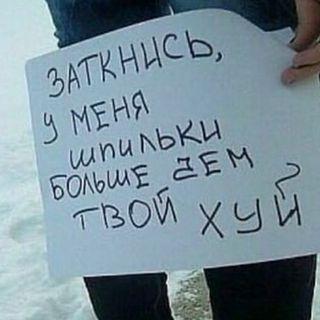 ЗАТКНИСЬ,
У МЕНЯ
ШПИЛЬКИ
БОЛЬШЕ ЧЕМ
ТВОЙ ХУЙ